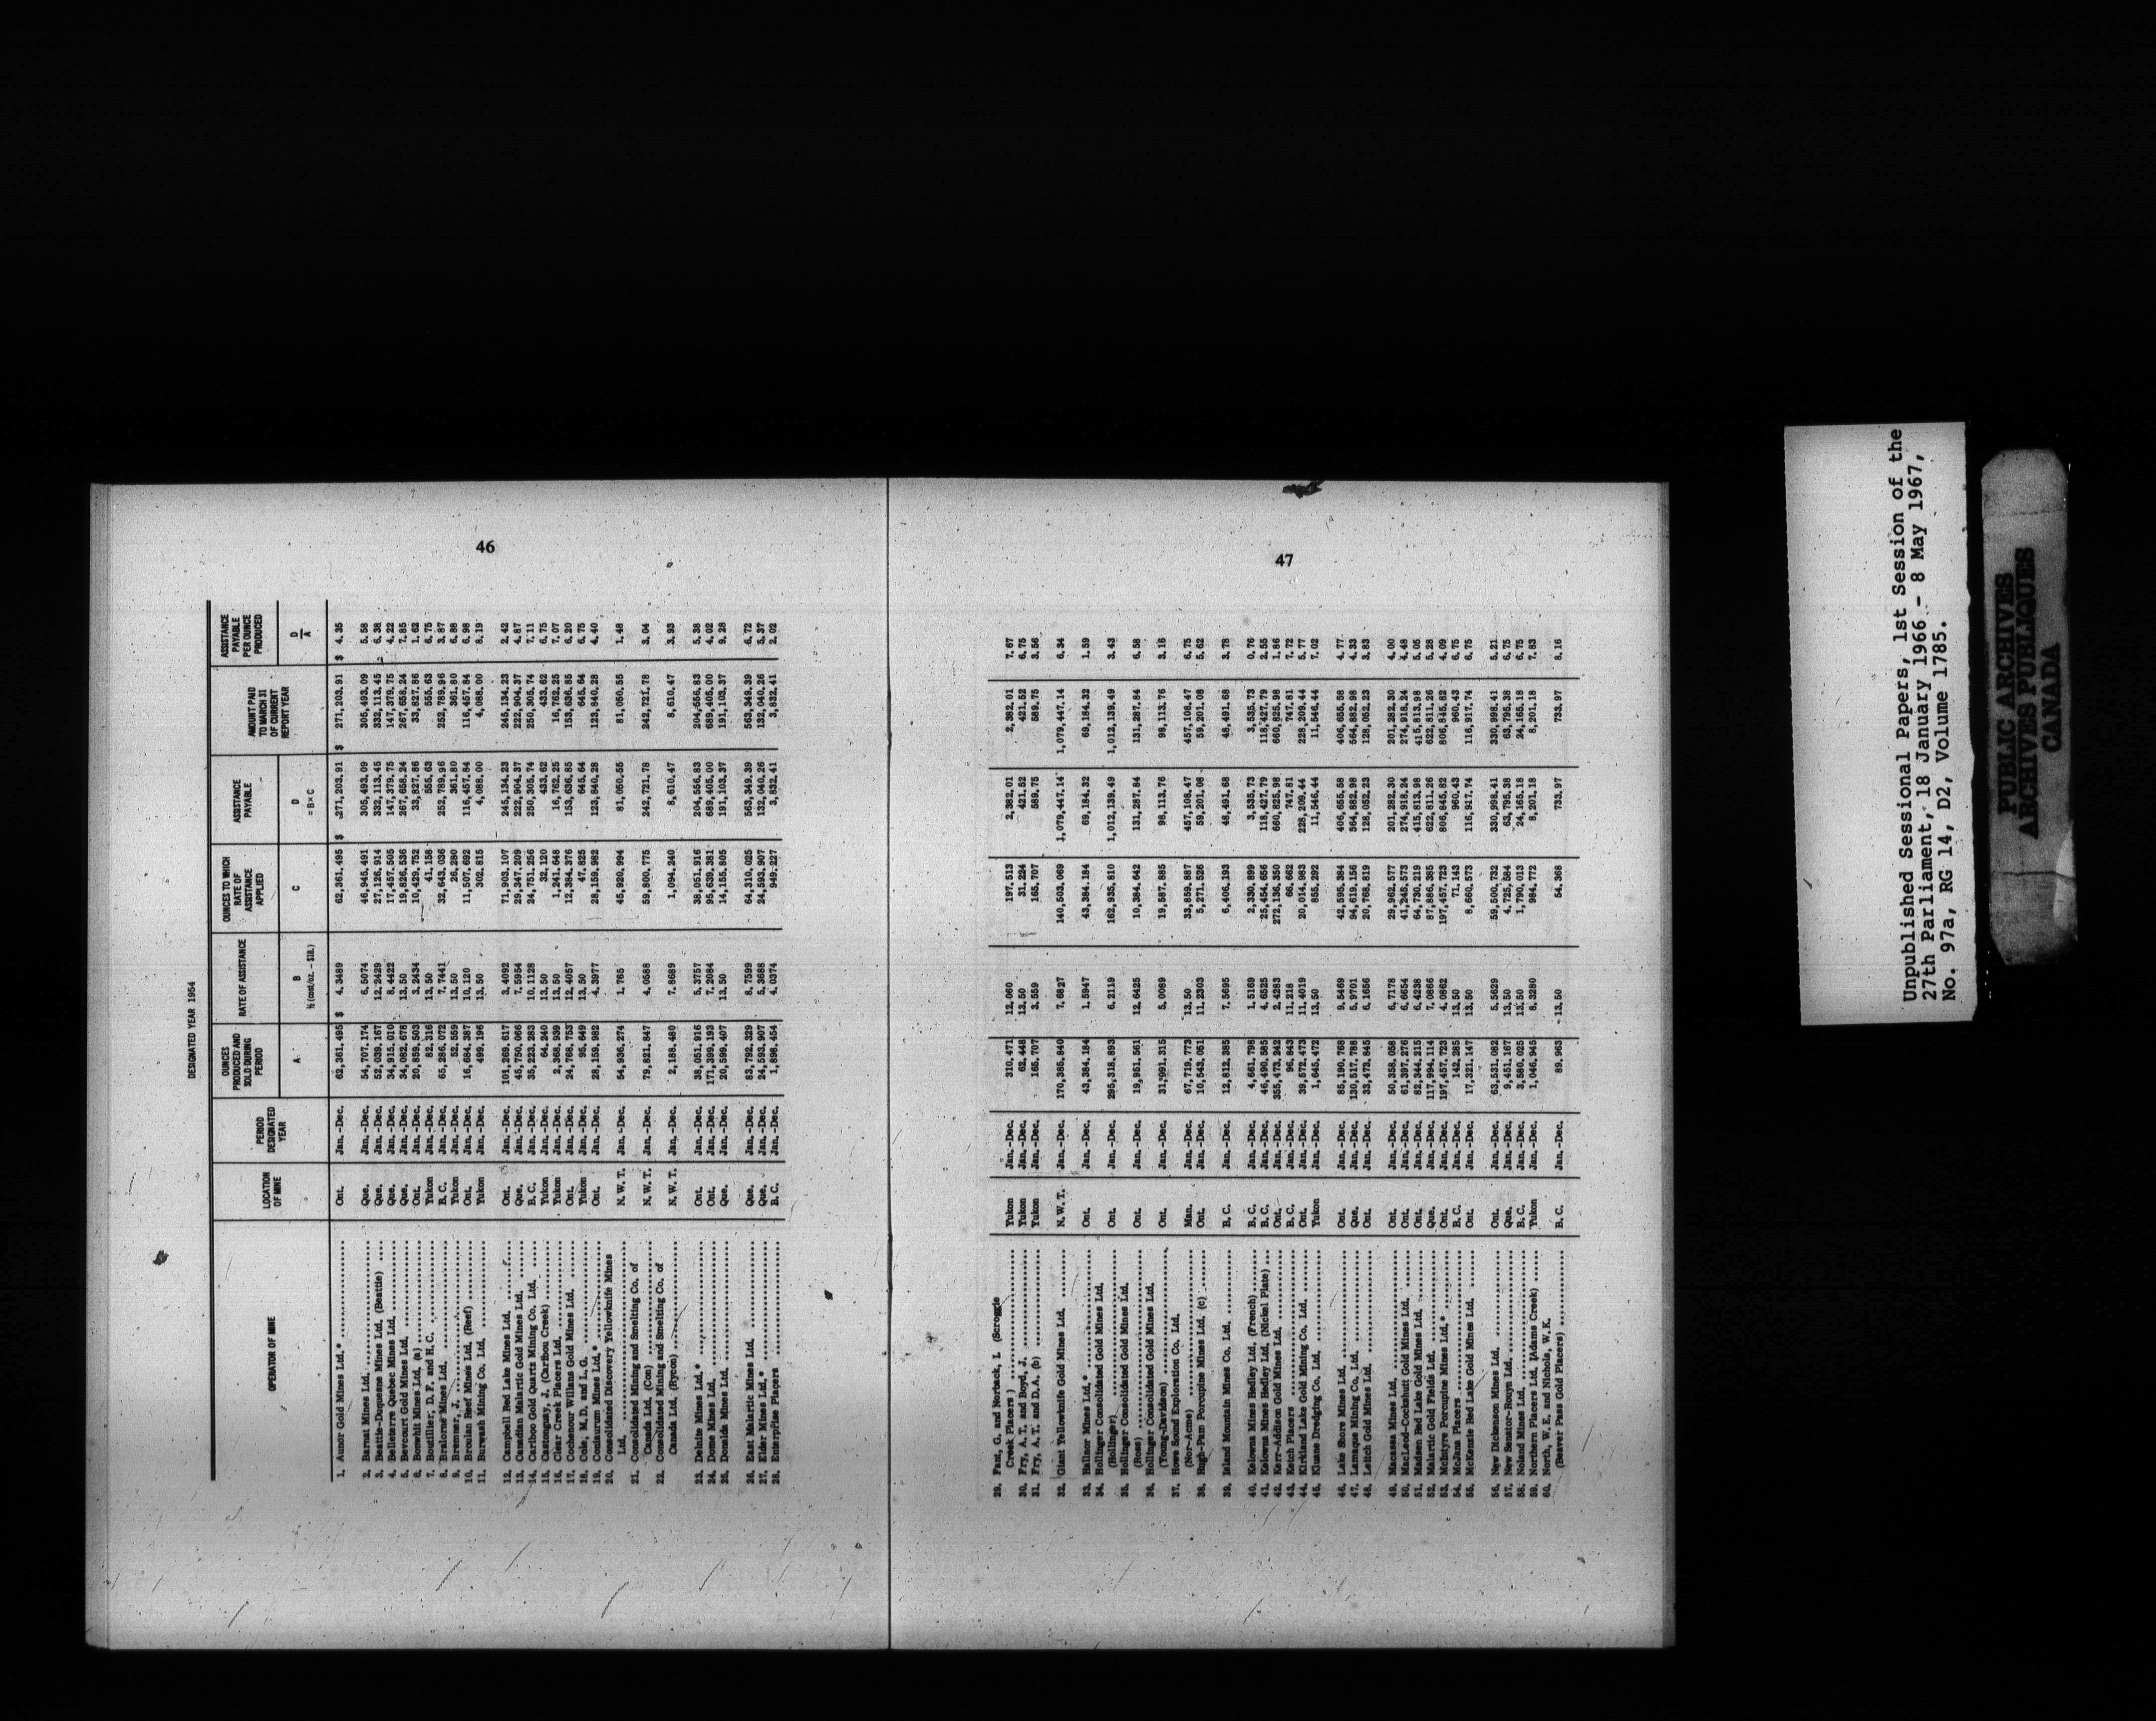 46
DESIGNATED YEAR 1954
OPERATOR OF MINE | LOCATION OF MINE | PERIOD DESIGNATED YEAR | OUNCES PRODUCED AND SOLD DURING PERIOD | RATE OF ASSISTANCE | OUNCES TO WHICH RATE OF ASSISTANCE APPLIED | ASSISTANCE PAYABLE | AMOUNT PAID TO MARCH 31 OF CURRENT REPORT YEAR | ASSISTANCE PAYABLE PER OUNCE PRODUCED
A | B ½ (cost/oz. - $18.) | C | D = B×C | D/A
1. Aunor Gold Mines Ltd.* Ont. Jan.-Dec. 62,361.495 $ 4.3489 62,361.495 $ 271,203.91 $ 271,203.91 $ 4.35
2. Barnat Mines Ltd. Que. Jan.-Dec. 54,707.174 6.5074 46,945.491 305,493.09 305,493.09 5.58
3. Beattie-Duquesne Mines Ltd. (Beattie) Que. Jan.-Dec. 52,039.167 12.2429 27,126.914 332,113.45 332,113.45 6.38
4. Belleterre Quebec Mines Ltd. Que. Jan.-Dec. 34,915.010 8.4422 17,457.505 147,379.75 147,379.75 4.22
5. Bevcourt Gold Mines Ltd. Que. Jan.-Dec. 34,082.678 13.50 19,826.536 267,658.24 267,658.24 7.85
6. Bonwhit Mines Ltd. (a) Ont. Jan.-Dec. 20,859.503 3.2434 10,429.752 33,827.86 33,827.86 1.62
7. Boutillier, D. F. and H. C. Yukon Jan.-Dec. 82.316 13.50 41.158 555.63 555.63 6.75
8. Bralorne Mines Ltd. B. C. Jan.-Dec. 65,286.072 7.7441 32,643.036 252,789.96 252,789.96 3.87
9. Bremner, J. Yukon Jan.-Dec. 52.559 13.50 26.280 361.80 361.80 6.88
10. Broulan Reef Mines Ltd. (Reef) Ont. Jan.-Dec. 16,684.387 10.120 11,507.692 116,457.84 116,457.84 6.98
11. Burwash Mining Co. Ltd. Yukon Jan.-Dec. 499.196 13.50 302.815 4,088.00 4,088.00 8.19
12. Campbell Red Lake Mines Ltd. Ont. Jan.-Dec. 101,269.617 3.4092 71,903.107 245,134.23 245,134.23 2.42
13. Canadian Malartic Gold Mines Ltd. Que. Jan.-Dec. 45,750.066 7.5954 29,347.209 222,904.37 222,904.37 4.87
14. Cariboo Gold Quartz Mining Co. Ltd. B. C. Jan.-Dec. 35,223.283 10.1128 24,751.256 250,305.74 250,305.74 7.11
15. Castonguay, J. (Caribou Creek) Yukon Jan.-Dec. 64.240 13.50 32.120 433.62 433.62 6.75
16. Clear Creek Placers Ltd. Yukon Jan.-Dec. 2,368.939 13.50 1,241.648 16,762.25 16,762.25 7.07
17. Cochenour Willans Gold Mines Ltd. Ont. Jan.-Dec. 24,768.753 12.4057 12,384.376 153,636.85 153,636.85 6.20
18. Cole, M. D. and L. G. Yukon Jan.-Dec. 95.649 13.50 47.825 645.64 645.64 6.75
19. Coniaurum Mines Ltd.* Ont. Jan.-Dec. 28,159.982 4.3977 28,159.982 123,840.28 123,840.28 4.40
20. Consolidated Discovery Yellowknife Mines
Ltd. N. W. T. Jan.-Dec. 54,936.274 1.765 45,920.994 81,050.55 81,050.55 1.48
21. Consolidated Mining and Smelting Co. of
Canada Ltd. (Con) N. W. T. Jan.-Dec. 79,821.847 4.0588 59,800.775 242,721.78 242,721.78 3.04
22. Consolidated Mining and Smelting Co. of
Canada Ltd. (Rycon) N. W. T. Jan.-Dec. 2,188.480 7.8689 1,094.240 8,610.47 8,610.47 3.93
23. Delnite Mines Ltd.* Ont. Jan.-Dec. 38,051.916 5.3757 38,051.916 204,556.83 204,556.83 5.38
24. Dome Mines Ltd. Ont. Jan.-Dec. 171,399.193 7.2084 95,639.381 689,405.00 689,405.00 4.02
25. Donalda Mines Ltd. Que. Jan.-Dec. 20,599.407 13.50 14,155.805 191,103.37 191,103.37 9.28
26. East Malartic Mines Ltd. Que. Jan.-Dec. 83,792.329 8.7599 64,310.025 563,349.39 563,349.39 6.72
27. Elder Mines Ltd.* Que. Jan.-Dec. 24,593.907 5.3688 24,593.907 132,040.26 132,040.26 5.37
28. Enterprise Placers B. C. Jan.-Dec. 1,898.454 4.0374 949.227 3,832.41 3,832.41 2.02
47
29. Fant, G. and Norback, I. (Scroggie
Creek Placers) Yukon Jan.-Dec. 310.471 12.060 197.513 2,382.01 2,382.01 7.67
30. Fry, A. T. and Boyd, J. Yukon Jan.-Dec. 62.448 13.50 31.224 421.52 421.52 6.75
31. Fry, A. T. and D. A. (b) Yukon Jan.-Dec. 165.707 3.559 165.707 589.75 589.75 3.56
32. Giant Yellowknife Gold Mines Ltd. N. W. T. Jan.-Dec. 170,385.840 7.6827 140,503.069 1,079,447.14 1,079,447.14 6.34
33. Hallnor Mines Ltd.* Ont. Jan.-Dec. 43,384.184 1.5947 43,384.184 69,184.32 69,184.32 1.59
34. Hollinger Consolidated Gold Mines Ltd.
(Hollinger) Ont. Jan.-Dec. 295,318.893 6.2119 162,935.810 1,012,139.49 1,012,139.49 3.43
35. Hollinger Consolidated Gold Mines Ltd.
(Ross) Ont. Jan.-Dec. 19,951.561 12.6425 10,384.642 131,287.84 131,287.84 6.58
36. Hollinger Consolidated Gold Mines Ltd.
(Young-Davidson) Ont. Jan.-Dec. 31,091.315 5.0089 19,587.885 98,113.76 98,113.76 3.16
37. Howe Sound Exploration Co. Ltd.
(Nor-Acme) Man. Jan.-Dec. 67,719.773 13.50 33,859.887 457,108.47 457,108.47 6.75
38. Hugh-Pam Porcupine Mines Ltd. (c) Ont. Jan.-Dec. 10,543.051 11.2303 5,271.526 59,201.08 59,201.08 5.62
39. Island Mountain Mines Co. Ltd. B. C. Jan.-Dec. 12,812.385 7.5695 6,406.193 48,491.68 48,491.68 3.78
40. Kelowna Mines Hedley Ltd. (French) B. C. Jan.-Dec. 4,661.798 1.5169 2,330.899 3,535.73 3,535.73 0.76
41. Kelowna Mines Hedley Ltd. (Nickel Plate) B. C. Jan.-Dec. 46,490.585 4.6525 25,454.656 118,427.79 118,427.79 2.55
42. Kerr-Addison Gold Mines Ltd. Ont. Jan.-Dec. 355,473.242 2.4283 272,136.350 660,825.98 660,825.98 1.86
43. Ketch Placers B. C. Jan.-Dec. 96.843 11.218 66.662 747.81 747.81 7.72
44. Kirkland Lake Gold Mining Co. Ltd. Ont. Jan.-Dec. 39,572.473 11.4019 20,014.983 228,209.44 228,209.44 5.77
45. Kluane Dredging Co. Ltd. Yukon Jan.-Dec. 1,645.472 13.50 855.292 11,546.44 11,546.44 7.02
46. Lake Shore Mines Ltd. Ont. Jan.-Dec. 85,190.768 9.5469 42,595.384 406,655.58 406,655.58 4.77
47. Lamaque Mining Co. Ltd. Que. Jan.-Dec. 130,517.788 5.9701 94,619.156 564,882.98 564,882.98 4.33
48. Leitch Gold Mines Ltd. Ont. Jan.-Dec. 33,473.845 6.1656 20,768.819 128,052.23 128,052.23 3.83
49. Macassa Mines Ltd. Ont. Jan.-Dec. 50,358.058 6.7178 29,962.577 201,282.30 201,282.30 4.00
50. MacLeod-Cockshutt Gold Mines Ltd. Ont. Jan.-Dec. 61,397.276 6.6654 41,245.573 274,918.24 274,918.24 4.48
51. Madsen Red Lake Gold Mines Ltd. Ont. Jan.-Dec. 82,344.215 6.4238 64,730.219 415,813.98 415,813.98 5.05
52. Malartic Gold Fields Ltd. Que. Jan.-Dec. 117,994.114 7.0866 87,886.385 622,811.26 622,811.26 5.28
53. McIntyre Porcupine Mines Ltd.* Ont. Jan.-Dec. 197,457.723 4.0862 197,457.723 806,845.82 806,845.82 4.09
54. McKana Placers B. C. Jan.-Dec. 142.285 13.50 71.143 960.43 960.43 6.75
55. McKenzie Red Lake Gold Mines Ltd. Ont. Jan.-Dec. 17,321.147 13.50 8,660.573 116,917.74 116,917.74 6.75
56. New Dickenson Mines Ltd. Ont. Jan.-Dec. 63,531.082 5.5629 59,500.732 330,998.41 330,998.41 5.21
57. New Senator-Rouyn Ltd. Que. Jan.-Dec. 9,451.167 13.50 4,725.584 63,795.38 63,795.38 6.75
58. Noland Mines Ltd. B. C. Jan.-Dec. 3,580.025 13.50 1,790.013 24,165.18 24,165.18 6.75
59. Northern Placers Ltd. (Adams Creek) Yukon Jan.-Dec. 1,046.945 8.3280 984.772 8,201.18 8,201.18 7.83
60. North, W. E. and Nichols, W. K.
(Beaver Pass Gold Placers) B. C. Jan.-Dec. 89.963 13.50 54.368 733.97 733.97 8.16
Unpublished Sessional Papers, 1st Session of the
27th Parliament, 18 January 1966 - 8 May 1967,
No. 97a, RG 14, D2, Volume 1785.
PUBLIC ARCHIVES
ARCHIVES PUBLIQUES
CANADA